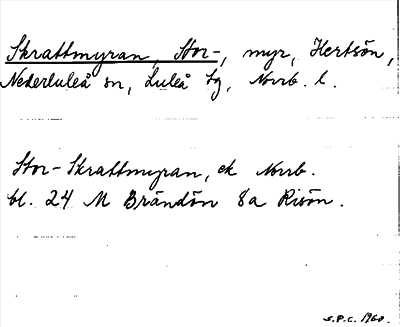 Skrattmyran, Stor-, myr, Hertsön,
Nederluleå sn, Luleå tg, Norrb. l.
Stor-Skrattmyran, ek Norrb.
bl. 24 M Brändön 8a Risön.
S.P.C. 1960.